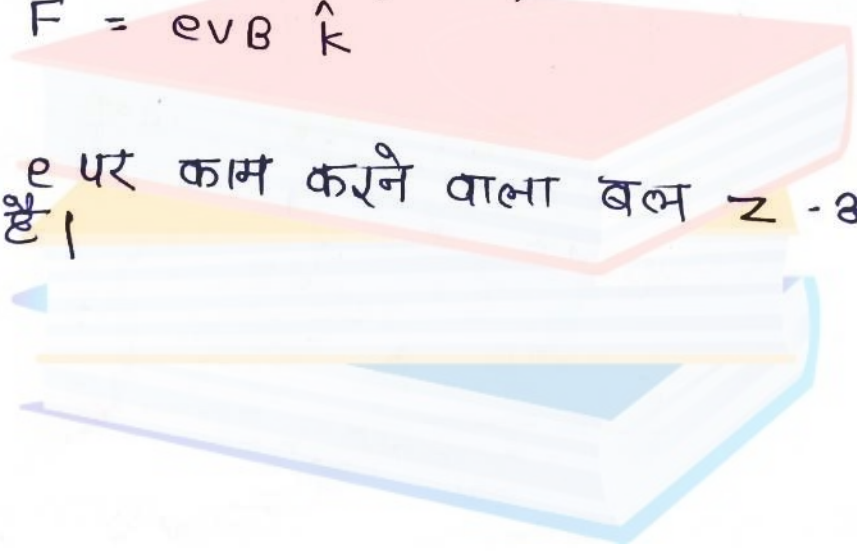 F = evB k̂
e पर काम करने वाला बल z -
है।